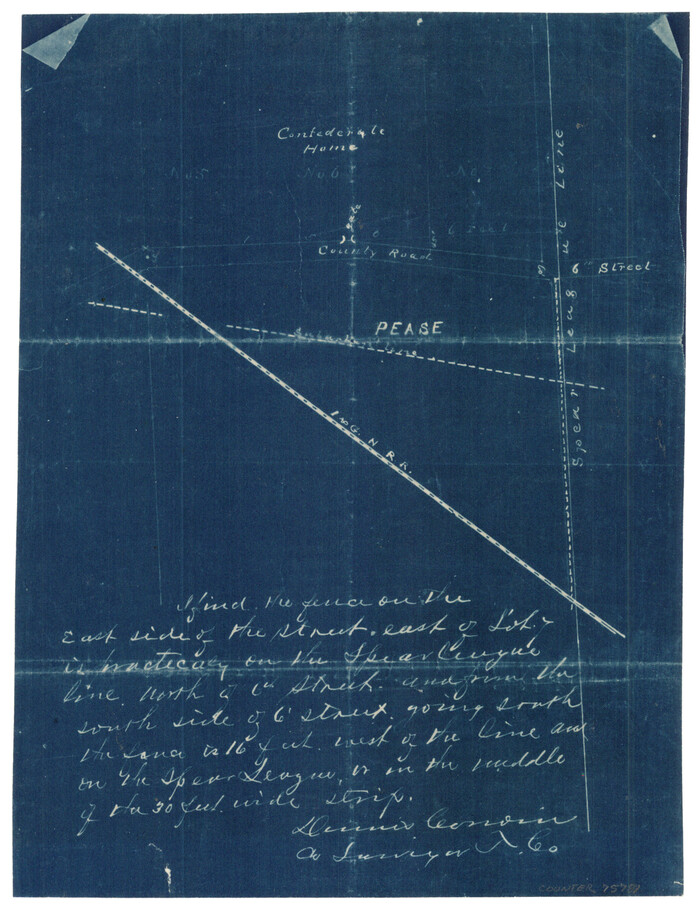 Confederate
Home
No 5 No 6 No
6 Street
County Road
6th Street
Spear League Line
PEASE
I & G. N. R. R.
I find the fence on the
East side of the street, east of Lot 7
is practicaly on the Spear League
line. North of 6th Street. and from the
south side of 6th street, going south
the fence is 16 feet west of the line and
on the Spear League, or in the middle
of the 30 feet wide strip.
Dennis Corwin
Co Surveyor T. Co
COUNTER